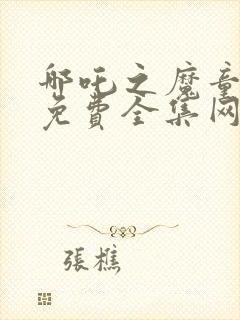 哪吒之魔童
免費全集网
張樵